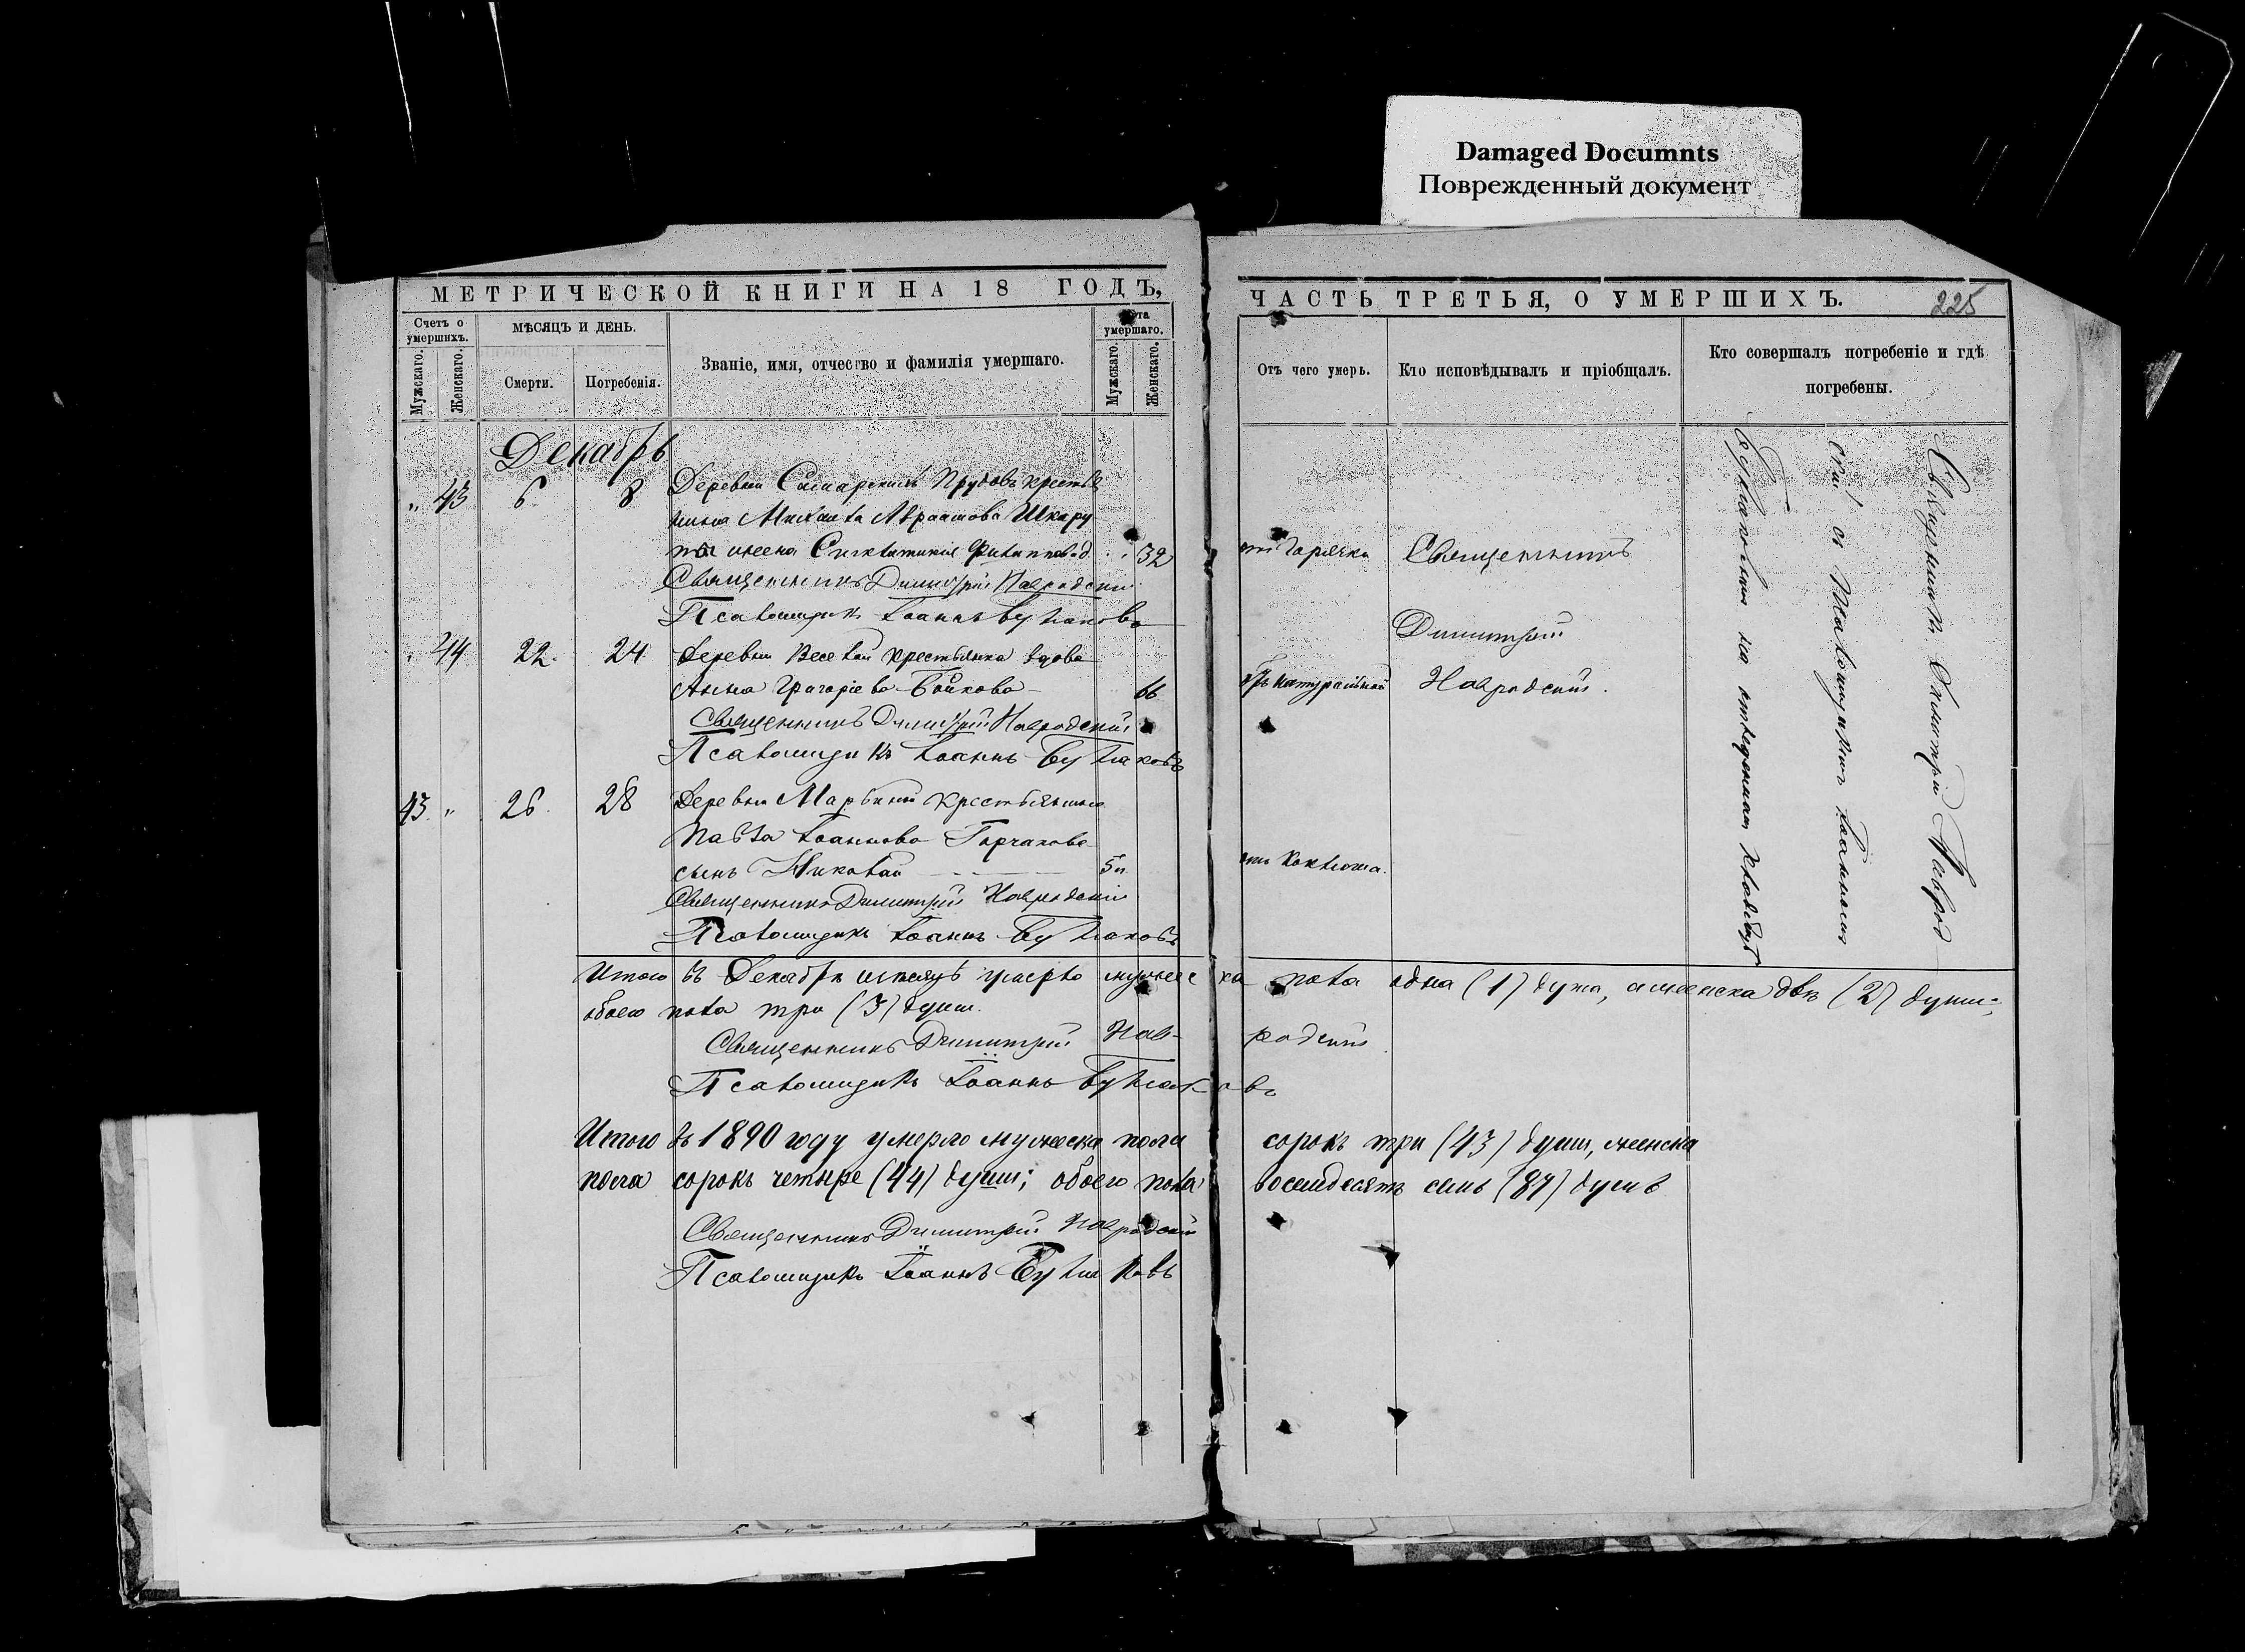 Damaged Documnts
Поврежденный документ
МЕТРИЧЕСКОЙ КНИГИ НА 18 ГОДЪ,
Счетъ о умершихъ.
Мужскаго.
Женскаго.
МѢСЯЦЪ И ДЕНЬ.
Смерти.
Погребенія.
Званіе, имя, отчество и фамилія умершаго.
умершаго.
Мужскаго.
Женскаго.
Декабрь
" 43 6. 8 Деревни Самарскихъ Прудовъ крестья
нина Михаила Авраамова Шкару
пы жена Филиппова 32
Священникъ Димитрій Навродскій
Псаломщикъ Іоаннъ Булгаковъ
" 44 22. 24 Деревни Веселой крестьянка вдова
Анна Григоріева Бойкова 66
Священникъ Димитрій Навродскій
Псаломщикъ Іоаннъ Булгаковъ
43. " 26. 28 Деревни Марьиной крестьянина
Павла Іоаннова Горчакова
сынъ Николай 5
Священникъ Димитрій Навродскій
Псаломщикъ Іоаннъ Булгаковъ
ЧАСТЬ ТРЕТЬЯ, О УМЕРШИХЪ.
225
Отъ чего умеръ.
Кто исповѣдывалъ и пріобщалъ.
Кто совершалъ погребеніе и гдѣ
погребены.
отъ горячки
натуральной
отъ коклюша.
Священникъ
Димитрій
Навродскій.
Священникъ Димитрій Наврод
скій съ Псаломщикомъ Іоанномъ
Булгаковымъ на отведенномъ кладбищѣ
Итого въ Декабрѣ мѣсяцѣ умерло мужеска пола одна (1) душа, а женска двѣ (2) души;
обоего пола три (3) души.
Священникъ Димитрій Навродскій
Псаломщикъ Іоаннъ Булгаковъ
Итого въ 1890 году умерло мужеска пола сорокъ три (43) души, женска
пола сорокъ четыре (44) души; обоего пола восемдесятъ семь (87) душъ
Священникъ Димитрій Навродскій
Псаломщикъ Іоаннъ Булгаковъ